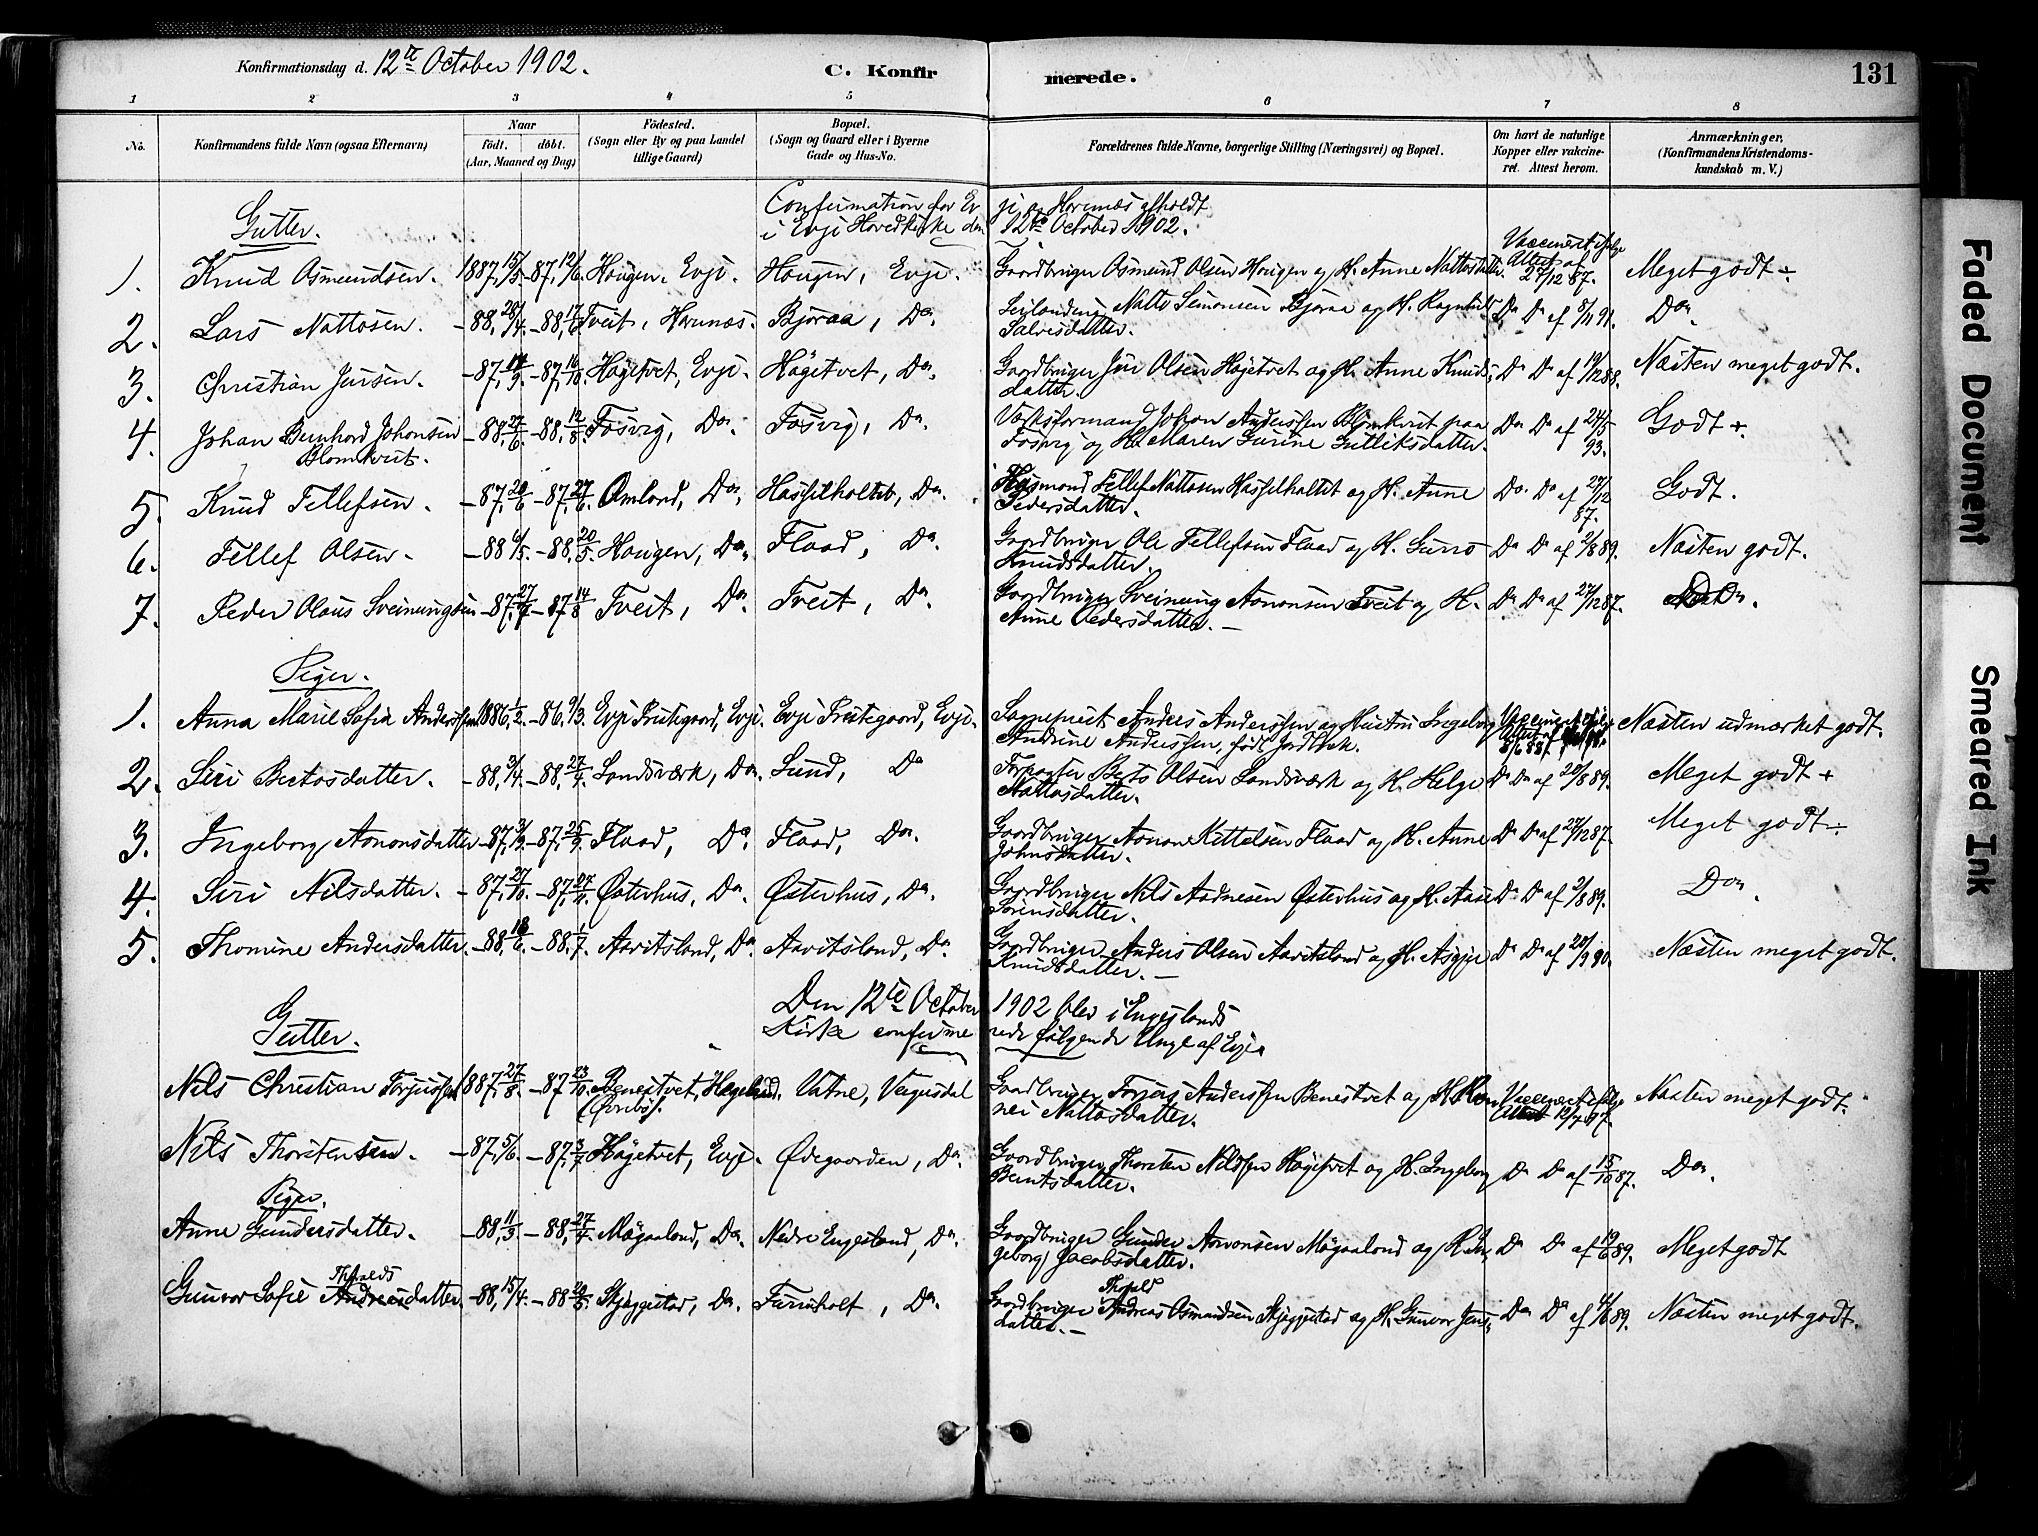 Konfirmationsdag d. 12te October 1902. C. Konfirmerede. 131
1 2 3 4 5 6 7 8
No. Konfirmandens fulde Navn (ogsaa Efternavn) Naar födt. döbt. (Aar, Maaned og Dag) Födested. (Sogn eller By og paa Landet tillige Gaard) Bopæl. (Sogn og Gaard eller i Byerne Gade og Hus-No. Forældrenes fulde Navne, borgerlige Stilling (Næringsvei) og Bopæl. Om havt de naturlige Kopper eller vakcineret. Attest herom. Anmærkninger, (Konfirmandens Kristendomskundskab m. V.)
Confirmation for Evje og Hornnæs afholdt
Gutter. i Evje Hovedkirke den 12te October 1902.
1. Knud Osmundsen. 1887, 15/5 -87, 12/6 Hougen, Evje. Hougen, Evje. Gaardbruger Osmund Olsen Hougen og H. Anne Nattosdatter. Vaccineret ifølge Attest af 27/12 87. Meget godt ÷
2. Lars Nattosen. -88, 28/4 -88, 17/6 Tveit, Hornnæs. Bjoraa, Do. Natto Simonsen Bjoraa og H. Ragnhild Salvesdatter. Do Do af 8/11 91. Do.
3. Christian Jensen. -87, 14/9 -87, 16/10 Høgetvet, Evje. Høgetvet, Do. Gaardbruger Jens Olsen Høgetvet og H. Anne Knudsdatter. Do Do af 19/12 88. Næsten meget godt.
4. Johan Bernhard Johansen Blomkvist. -88, 27/6 -88, 12/8 Fosvig, Do. Fosvig, Do. Johan Anderssen Blomkvist paa Fosvig og H. Maren Gurine Gulliksdatter. Do Do af 24/5 93. Godt +.
5. Knud Tellefsen. -87, 20/6 -87, 27/6 Omland, Do. Hasselholtet, Do. Husmand Tellef Nattosen Hasselholtet og H. Anne Pedersdatter. Do Do af 27/12 87. Godt.
6. Tellef Olsen. -88 6/5 -88, 20/5 Hougen, Do. Flaad, Do. Gaardbruger Ole Tellefsen Flaad og H. Gurro Knudsdatter. Do Do af 2/8 89. Næsten godt.
7. Peder Olaus Sveinungsen -87, 27/7 -87, 14/8 Tveit, Do. Tveit, Do. Gaardbruger Sveinung Aanonsen Tveit og H. Anne Pedersdatter. Do Do af 27/12 87. Do.
Piger.
1. Anna Marie Sofia Anderssen 1886, 1/2 -86, 9/3 Evje Prestegaard, Evje. Evje Prestegaard, Evje. Sogneprest Anders Anderssen og Hustru Ingeborg Andrine Anderssen, født Jordbæk. Vaccineret ifølge Attest af 8/6 88. Næsten udmærket godt.
2. Siri Bertosdatter. -88, 3/4 -88, 27/4 Landsværk, Do. Lund, Do Forpagter Berto Olsen Landsværk og H. Helge Nattosdatter. Do Do af 20/8 89. Meget godt +
3. Ingeborg Aanonsdatter -87, 3/9 -87, 25/9 Flaad, Do. Flaad, Do. Gaardbruger Aanon Kittelsen Flaad og H. Anne Johnsdatter. Do Do af 27/12 87. Meget godt ÷
4. Siri Nilsdatter. -87, 27/10 -87, 27/11 Østerhus, Do. Østerhus, Do. Gaardbruger Nils Aadnesen Østerhus og H. Aase Sørensdatter. Do Do af 2/8 89. Do.
5. Thomine Andersdatter. -88, 18/6 -88, 1/7 Aavitsland, Do Aavitsland, Do. Gaardbruger Anders Olsen Aavitsland og H. Asgjer Knudsdatter. Do Do af 20/9 90. Næsten meget godt.
Den 12te October 1902 blev i Engeslands
Gutter. Kirke confirmerede følgende Unge af Evje.
Nils Christian Torjussen 1887, 27/8 -87 23/10 Benestvet, Hægeland. (Øvrebø). Vatne, Vegusdal Gaardbruger Torjus Anderssen Benestvet og H. Ronnei Nattosdatter. Vaccineret ifølge Attest 12/7 97. Næsten meget godt.
Nils Thorstensen. -87, 5/6 -87, 3/7 Høgetvet, Evje. Ødegaarden, Do. Gaardbruger Thorsten Nilssen Høgetvet og H. Ingeborg Berntsdatter. Do Do af 15/10 87. Do.
Piger.
Anne Gundersdatter. -88, 11/3 -88, 27/4 Møgaaland, Do. Nedre Engesland, Do. Gaardbruger Gunder Aanonsen Møgaaland og H. Ingeborg Jacobsdatter. Do Do af 19/6 89. Meget godt
Gunvor Sofie Andreasdatter. -88, 15/4 -88 Skjeggestad, Do. Furuholt, Do. Gaardbruger Andreas Osmundsen Skjeggestad og H. Gunvor Jensdatter. Do Do af 89. Næsten meget godt.
Faded Document
Smeared Ink